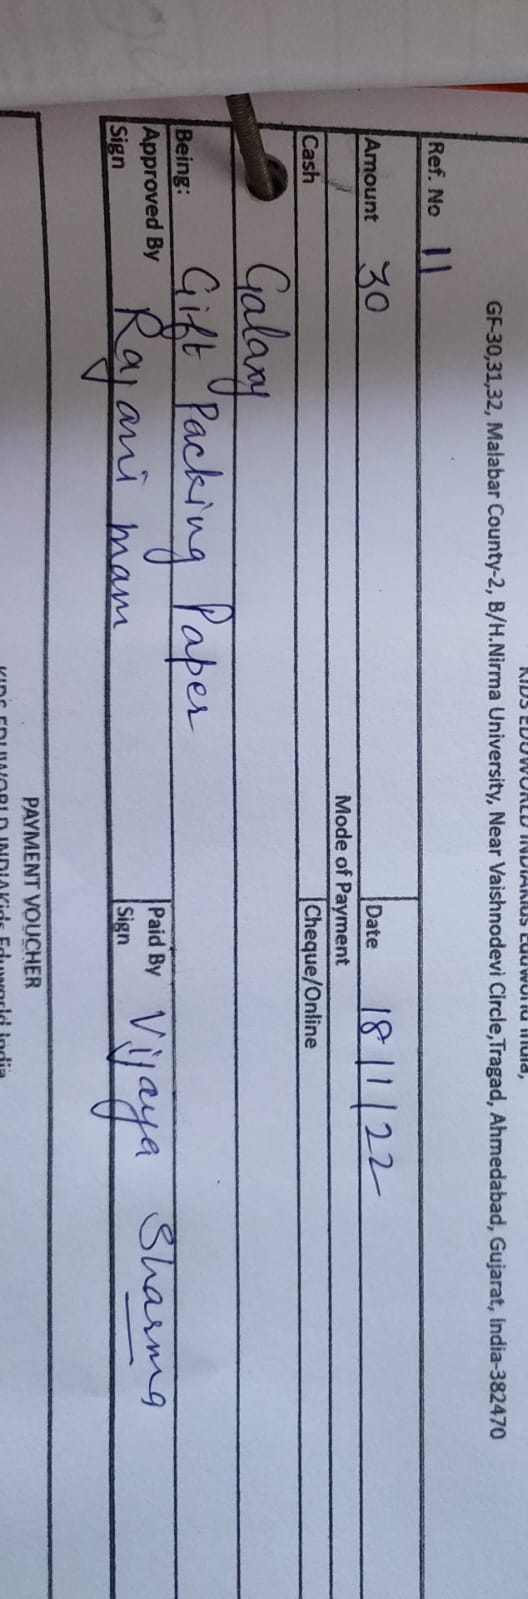 KIDS EDUWORLD INDIAKids Eduworld India,
GF-30,31,32, Malabar County-2, B/H.Nirma University, Near Vaishnodevi Circle,Tragad, Ahmedabad, Gujarat, India-382470
Ref. No 11
Amount 30 Date 18/1/22
Mode of Payment
Cash Cheque/Online
Galaxy
Being: Gift Packing Paper
Approved By Rajani mam Paid By Vijaya Sharma
Sign Sign
PAYMENT VOUCHER
KIDS EDUWORLD INDIAKids Eduworld India